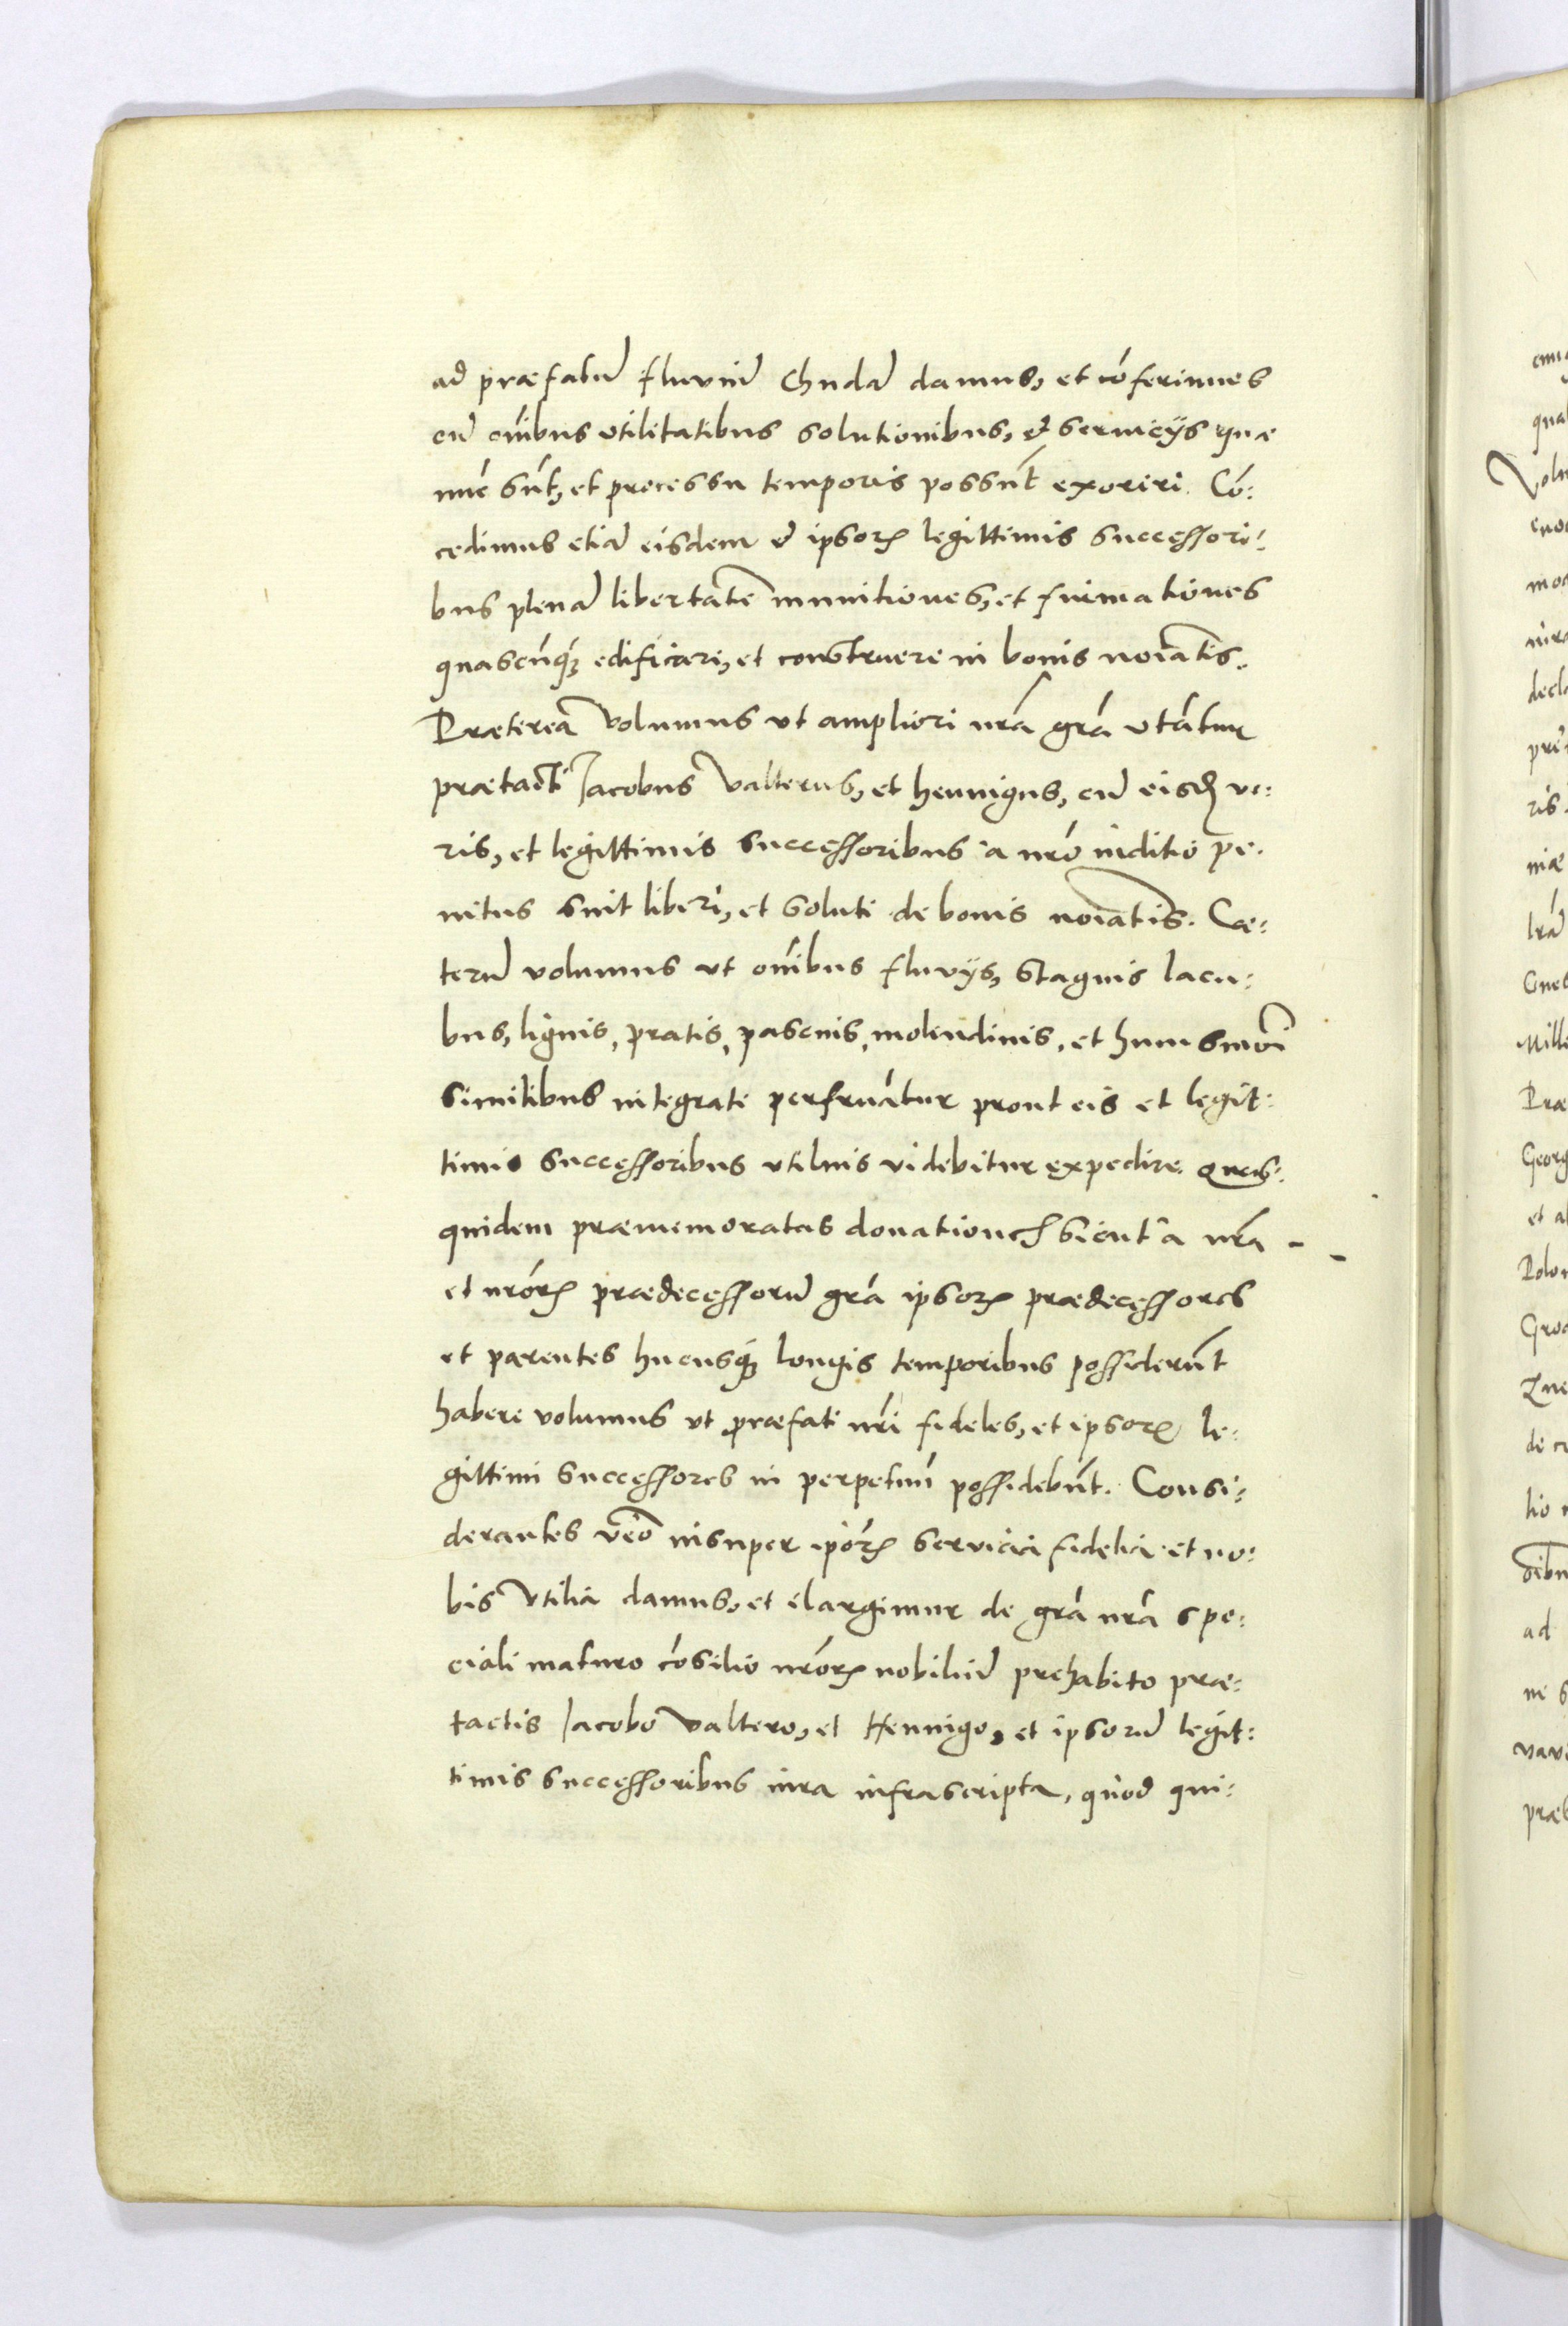 ad præfatũ fluviũ Chudã damus, et cõferimus
cũ oĩbus utilitatibus solutionibus, & servicijs quæ
nũc sũt, et processu temporis possũt exoriri. Cõ:
cedimus etiã eisdem & ipsoꝝ legittimis successori:
bus plenã libertatẽ munitiones, et firmationes
quascũqꝫ edificari, et construere in bonis noĩatis.
Prætereã volumus ut ampliori nr̃a gr̃a utãtur
prætacti Jacobus Valterus, et hennigus, cũ eisdẽ ve:
ris, et legittimis successoribus a nr̃o inditio pe:
nitus sint liberi, et soluti de bonis noĩatis. Cæ:
terũ volumus ut oĩbus fluvijs, stagnis lacu:
bus, lignis, pratis, pascuis, molendinis, et huiusmõi
similibus integrate perfruãtur prout eis et legit:
timis successoribus utilius videbitur expedire. Quas:
quidem præmemoratas donationes sicut a nr̃a
et nr̃oꝝ prædecessorũ gr̃a ipsoꝝ prædecessores
et parentes hucusqꝫ longis temporibus possiderũt
habere volumus ut præfati nr̃i fideles, et ipsoꝝ le:
gittimi successores in perpetuũ possidebũt. Consi:
derantes vẽo insuper ip̃oꝝ servicia fidelia et no:
bis utilia damus, et elargimur de gr̃a nr̃a spe:
ciali maturo cõsilio nr̃oꝝ nobiliũ prehabito præ:
tactis Jacobo Valtero, et Hennigo, et ipsorũ legit:
timis successoribus iura infrascripta, quod qui: